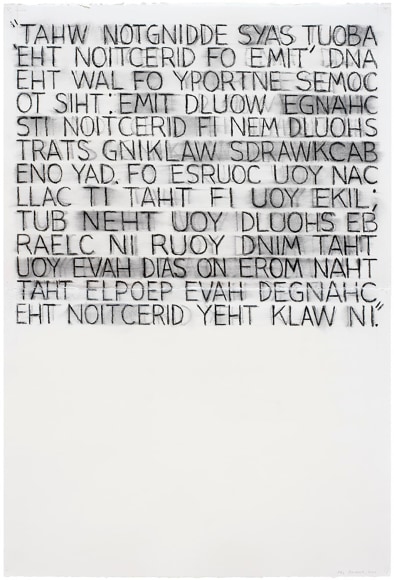 "TAHW NOTGNIDDE SYAS TUOBA
'EHT NOITCERID FO EMIT' DNA
EHT WAL FO YPORTNE SEMOC
OT SIHT: EMIT DLUOW EGNAHC
STI NOITCERID FI NEM DLUOHS
TRATS GNIKLAW SDRAWKCAB
ENO YAD. FO ESRUOC UOY NAC
LLAC TI TAHT FI UOY EKIL;
TUB NEHT UOY DLUOHS EB
RAELC NI RUOY DNIM TAHT
UOY EVAH DIAS ON EROM NAHT
TAHT ELPOEP EVAH DEGNAHC
EHT NOITCERID YEHT KLAW NI."